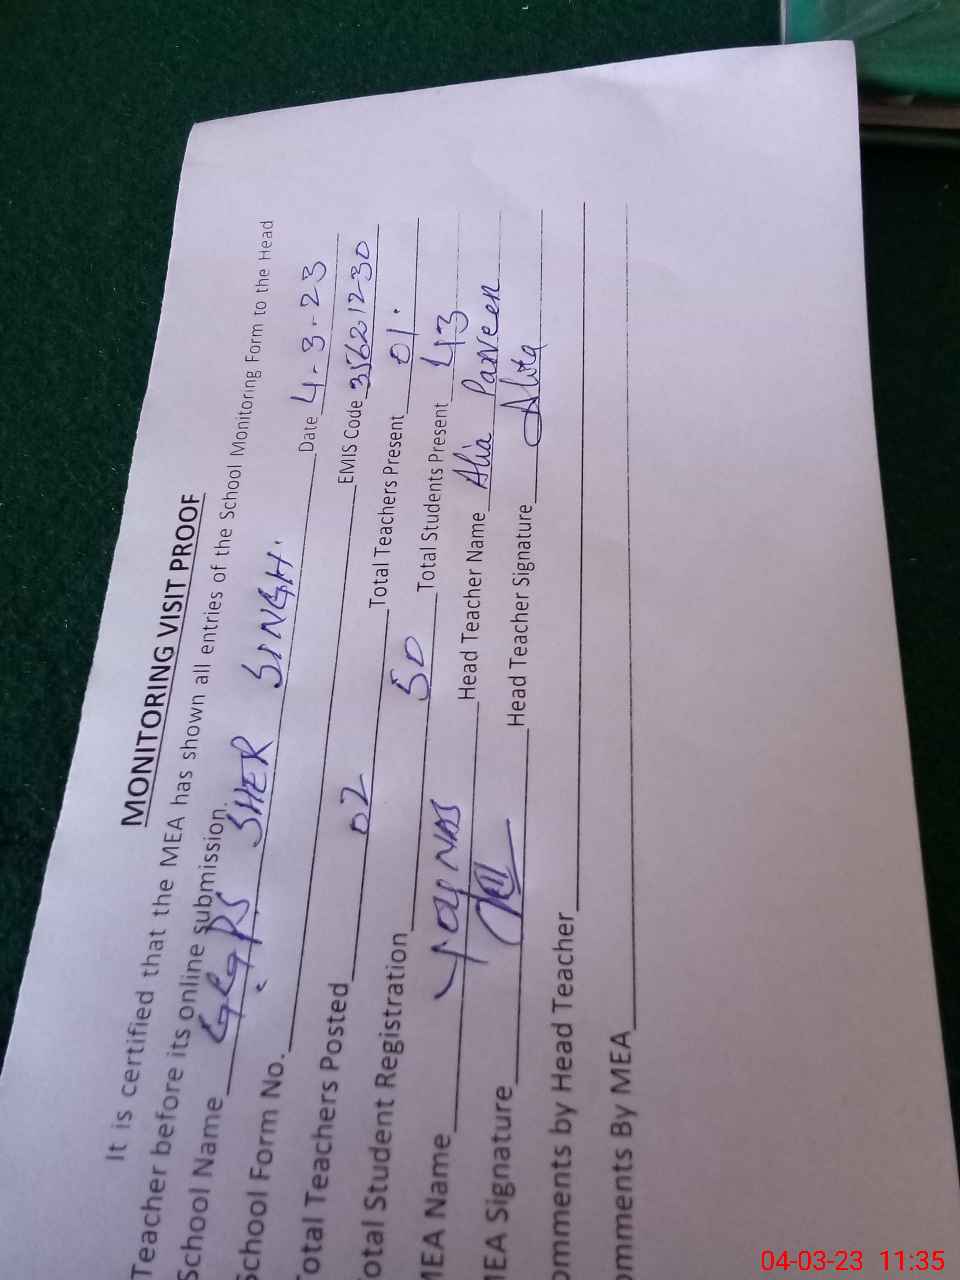 MONITORING VISIT PROOF
It is certified that the MEA has shown all entries of the School Monitoring Form to the Head
Teacher before its online submission.
School Name GGPS SHER SINGH. Date 4-3-23
School Form No. EMIS Code 35621230
Total Teachers Posted 02 Total Teachers Present 01.
Total Student Registration 50 Total Students Present 43
MEA Name Head Teacher Name Alia Parveen
MEA Signature Head Teacher Signature
omments by Head Teacher
omments By MEA
04-03-23 11:35